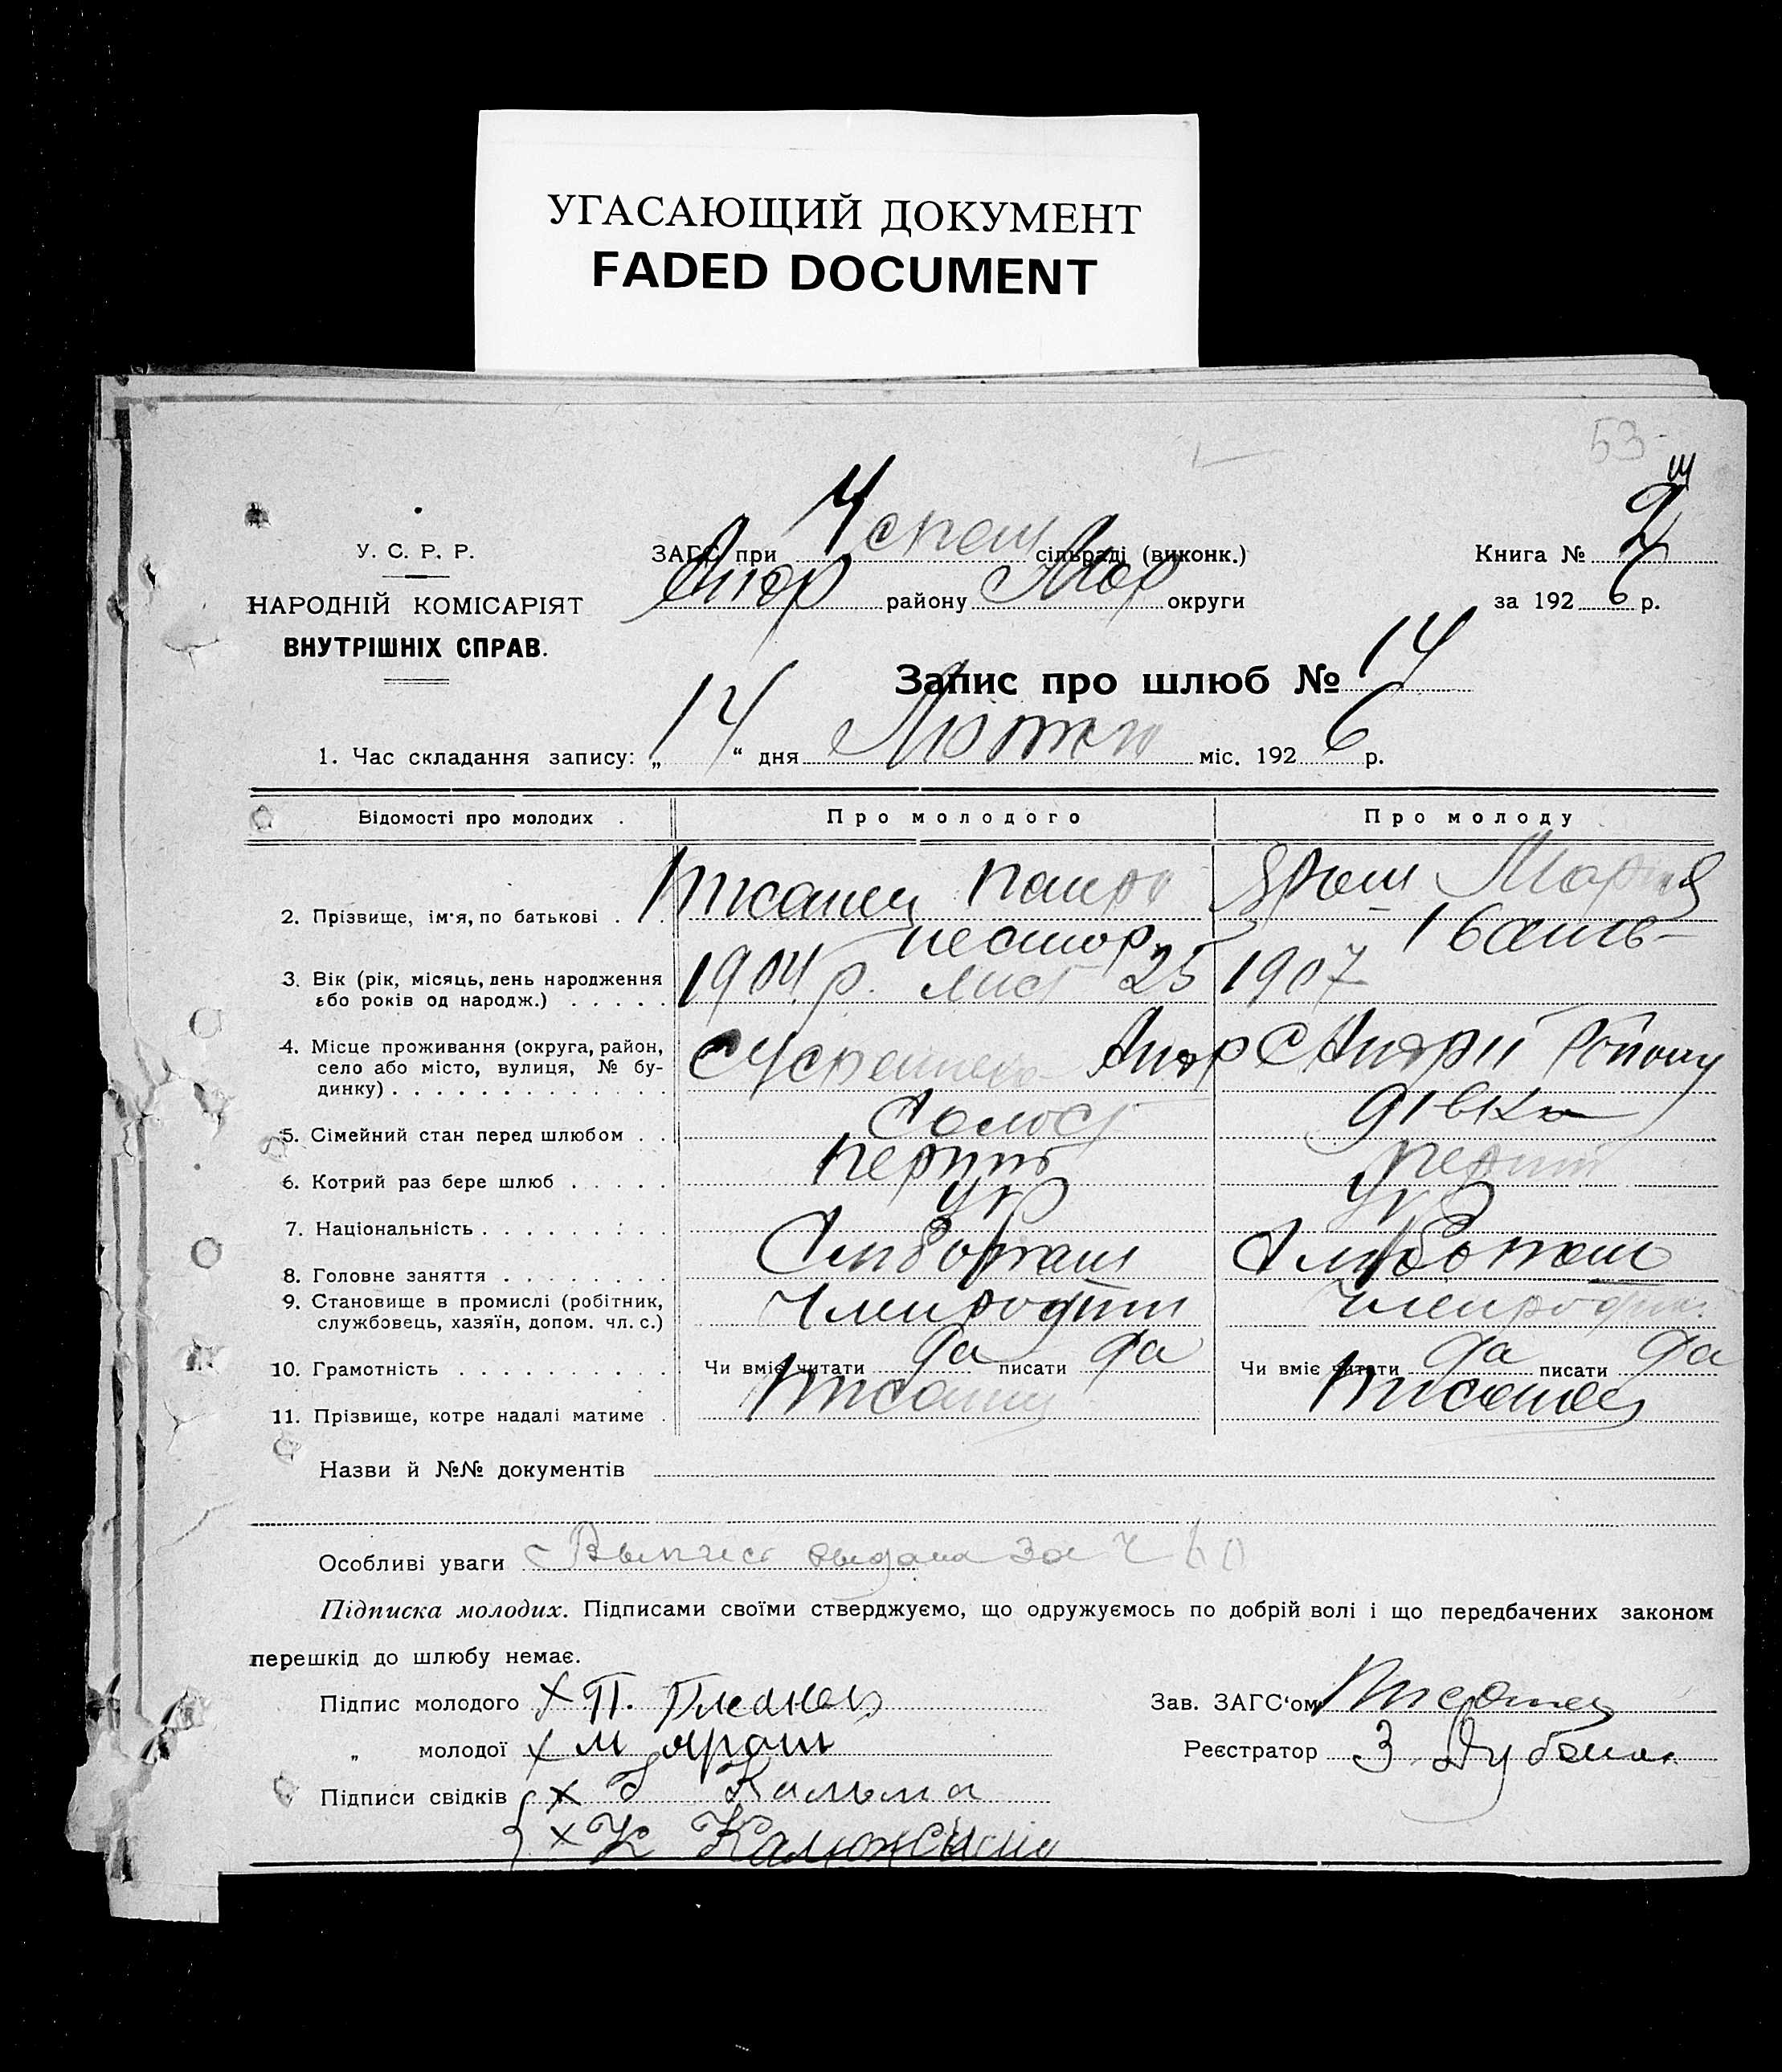 УГАСАЮЩИЙ ДОКУМЕНТ
FADED DOCUMENT
53
У. С. Р. Р.
НАРОДНІЙ КОМІСАРІЯТ
ВНУТРІШНІХ СПРАВ.
ЗАГС при Успен сільраді (виконк.)
району Мар округи
Книга № 2
за 1926 р.
Запис про шлюб № 14
1. Час складання запису: „14“ дня Лютого міс. 1926 р.
Відомості про молодих . Про молодого Про молоду
2. Прізвище, ім'я, по батькові . . Писанец Яраш Мария
нестор.
3. Вік (рік, місяць, день народження 1904 р. лист 25 1907
або років од народж.) . . . . .
4. Місце проживання (округа, район,
село або місто, вулиця, № бу-
динку) . . . . . . . . . . . . .
5. Сімейний стан перед шлюбом . . холост дівка
6. Котрий раз бере шлюб . . . . . перший перший
7. Національність . . . . . . . . . укр укр
8. Головне заняття . . . . . . . . Хлибопаш Хлибопаш
9. Становище в промислі (робітник,
службовець, хазяїн, допом. чл. с.) Член родини Член родин.
10. Грамотність . . . . . . . . . . . Чи вміє читати да писати да Чи вміє читати да писати да
11. Прізвище, котре надалі матиме . Писанец Писанец
Назви й №№ документів
Особливі уваги Выпись выдана за Ч 60
Підписка молодих. Підписами своїми стверджуємо, що одружуємось по добрій волі і що передбачених законом
перешкід до шлюбу немає.
Підпис молодого х П. Писанец Зав. ЗАГС'ом Писанец
„ молодої х М Яраш Реєстратор З.
Підписи свідків х Кальма
х К